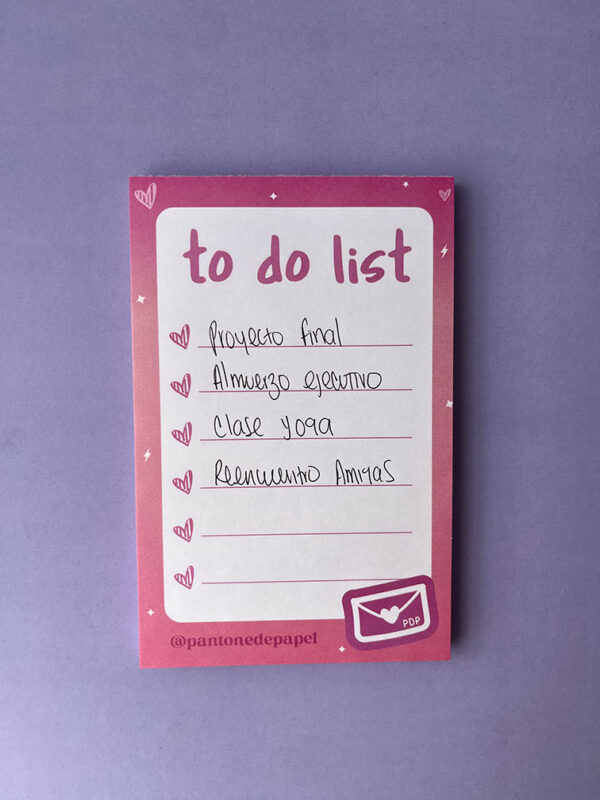 to do list
Proyecto final
Almuerzo ejecutivo
Clase yoga
Reencuentro Amigas
@pantonedepapel
PDP